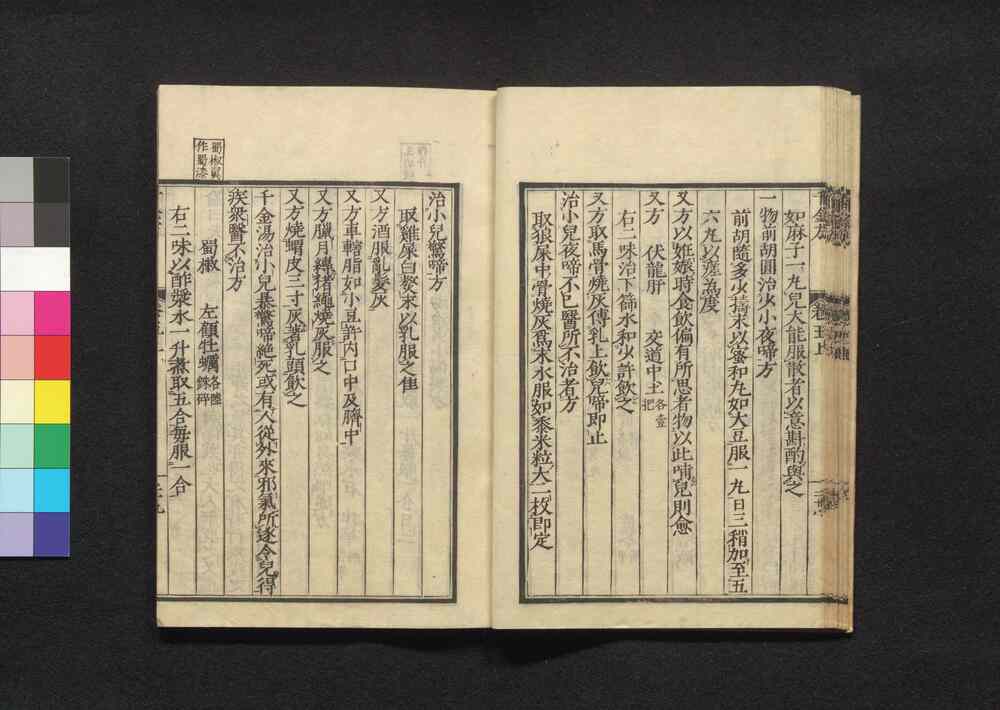 如麻子一丸兒大能服散者以意斟酌與之
一物前胡圓治少小夜啼方
前胡隨多少擣末以蜜和丸如大豆服一丸日三稍加至五
六丸以瘥爲度
又方以姙娠時食飲偏有所思者物以此哺兒則愈
又方　伏龍肝　交道中土各壹把
右二味治下篩水和少許飲之
又方取馬骨燒灰傅乳上飲兒啼即止
治小兒夜啼不已醫所不治者方
取狼屎中骨燒灰爲末水服如黍米粒大二枚即定
治小兒驚啼方
取雞屎白熬末以乳服之佳
又方酒服亂髮灰
又方車轄脂如小豆許内口中及臍中
又方臘月縛猪繩燒灰服之
又方燒蝟皮三寸灰著乳頭飲之
千金湯治小兒暴驚啼絶死或有人從外來邪氣所逐令兒得
疾衆醫不治方
蜀椒　左顧牡蠣各陸銖碎
右二味以酢漿水一升煮取五合每服一合
蜀椒翼
作蜀漆
卷五上